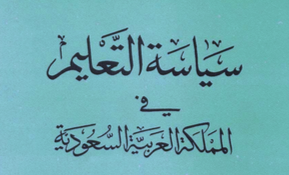 سياسة التعليم
في
المملكة العربية السعودية